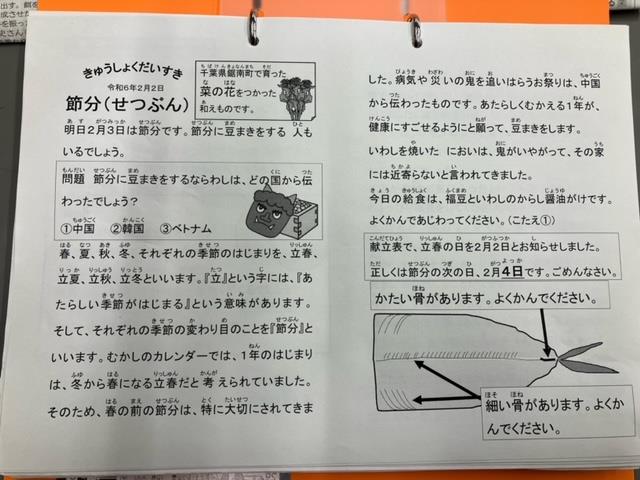 きゅうしょくだいすき
令和6年2月2日
節分(せつぶん)
千葉県鋸南町で育った
菜の花をつかった
和えものです。
明日2月3日は節分です。節分に豆まきをする 人も
いるでしょう。
問題 節分に豆まきをするならわしは、どの国から伝
わったでしょう?
①中国 ②韓国 ③ベトナム
春、夏、秋、冬、それぞれの季節のはじまりを、立春、
立夏、立秋、立冬といいます。『立』という字には、『あ
たらしい季節がはじまる』という意味があります。
そして、それぞれの季節の変わり目のことを『節分』と
いいます。むかしのカレンダーでは、1年のはじまり
は、冬から春になる立春だと考えられていました。
そのため、春の前の節分は、特に大切にされてきま
した。病気や災いの鬼を追いはらうお祭りは、中国
から伝わったものです。あたらしくむかえる1年が、
健康にすごせるようにと願って、豆まきをします。
いわしを焼いた においは、鬼がいやがって、その家
には近寄らないと言われてきました。
今日の給食は、福豆といわしのからし醤油がけです。
よくかんであじわってください。(こたえ①)
献立表で、立春の日を2月2日とお知らせしました。
正しくは節分の次の日、2月4日です。ごめんなさい。
かたい骨があります。よくかんでください。
細い骨があります。よくか
んでください。